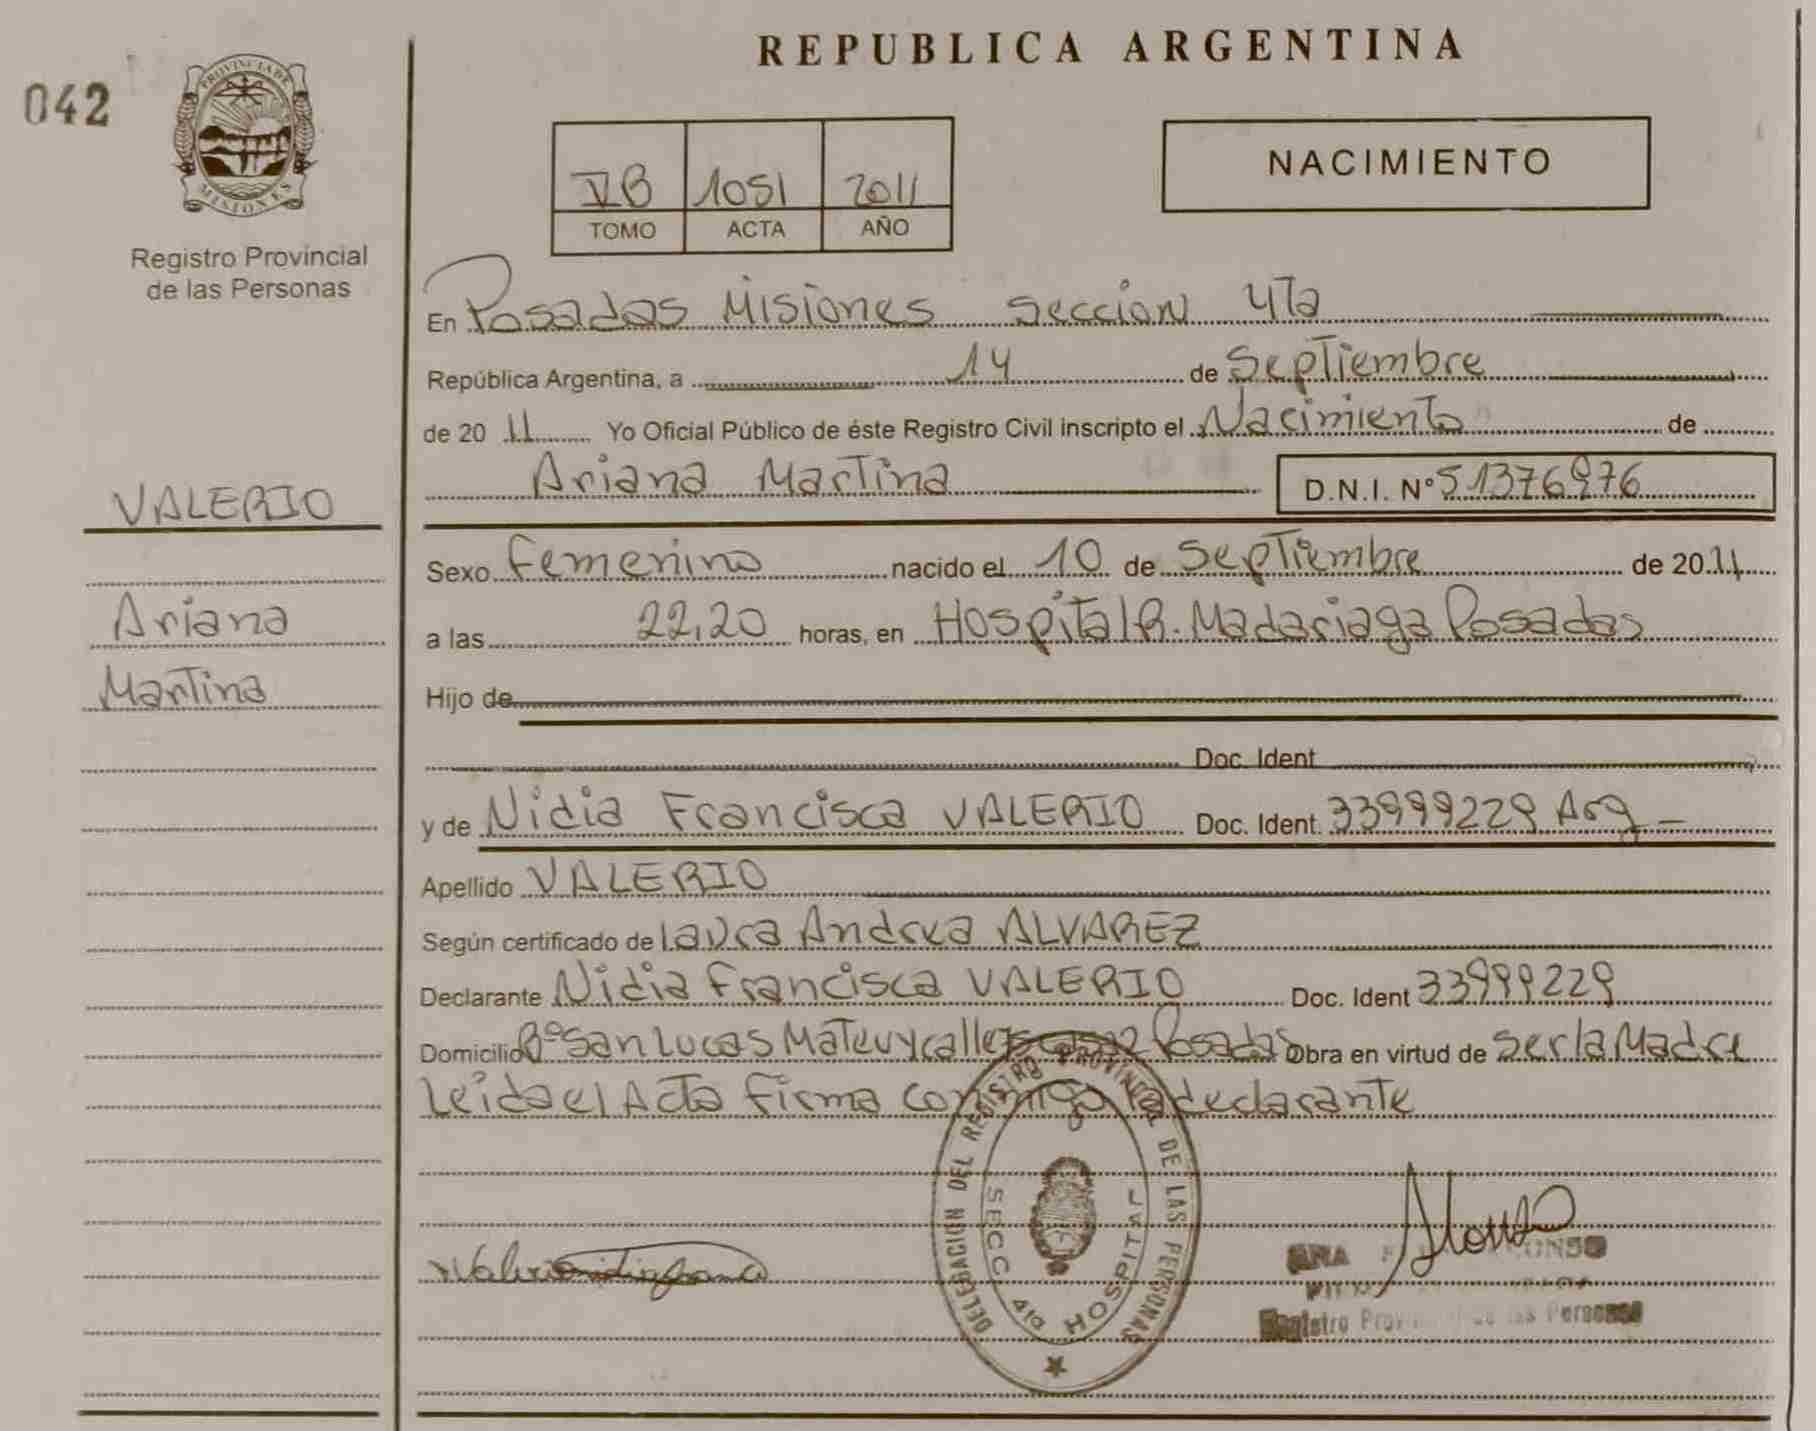 REPUBLICA ARGENTINA
042
PROVINCIA DE
MISIONES
Registro Provincial
de las Personas
VB 1051 2011
TOMO ACTA AÑO
NACIMIENTO
En Posadas Misiones seccion 4Ta
República Argentina, a 14 de Septiembre
de 20 11 Yo Oficial Público de éste Registro Civil inscripto el Nacimiento de
Ariana Martina D.N.I. N° 51376976
VALERIO
Ariana
Martina
Sexo Femenino nacido el 10 de Septiembre de 20 11
a las 22,20 horas, en Hospital R. Madariaga Posadas
Hijo de
Doc. Ident
y de Nidia Francisca VALERIO Doc. Ident. 33999229 Arg
Apellido VALERIO
Según certificado de Laura Andrea ALVAREZ
Declarante Nidia Francisca VALERIO Doc. Ident 33999229
Domicilio Bº San Lucas Mateu y calle Posadas Obra en virtud de ser la Madre
Leida el Acta Firma conmigo la declarante
DELEGACION DEL REGISTRO PROVINCIAL DE LAS PERSONAS
SECC. 4ta HOSPITAL
ANA
Registro Provincial de las Personas